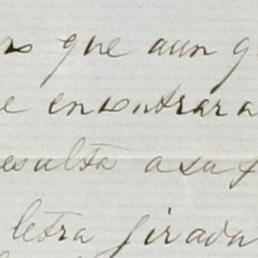 que aun
encontrara
esulta a su
letra jirada